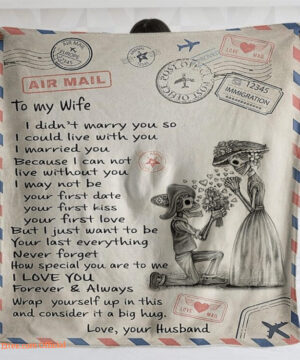 AIR MAIL
LOVE MAIL
POST OFFICE
POST OFFICE
12345
IMMIGRATION
To my Wife
I didn't marry you so
I could live with you
I married you
Because I can not
live without you
I may not be
your first date
your first kiss
your first love
But I just want to be
Your last everything
Never forget
How special you are to me
I LOVE YOU
Forever & Always
Wrap yourself up in this
and consider it a big hug.
Love, your Husband
LOVE MAIL